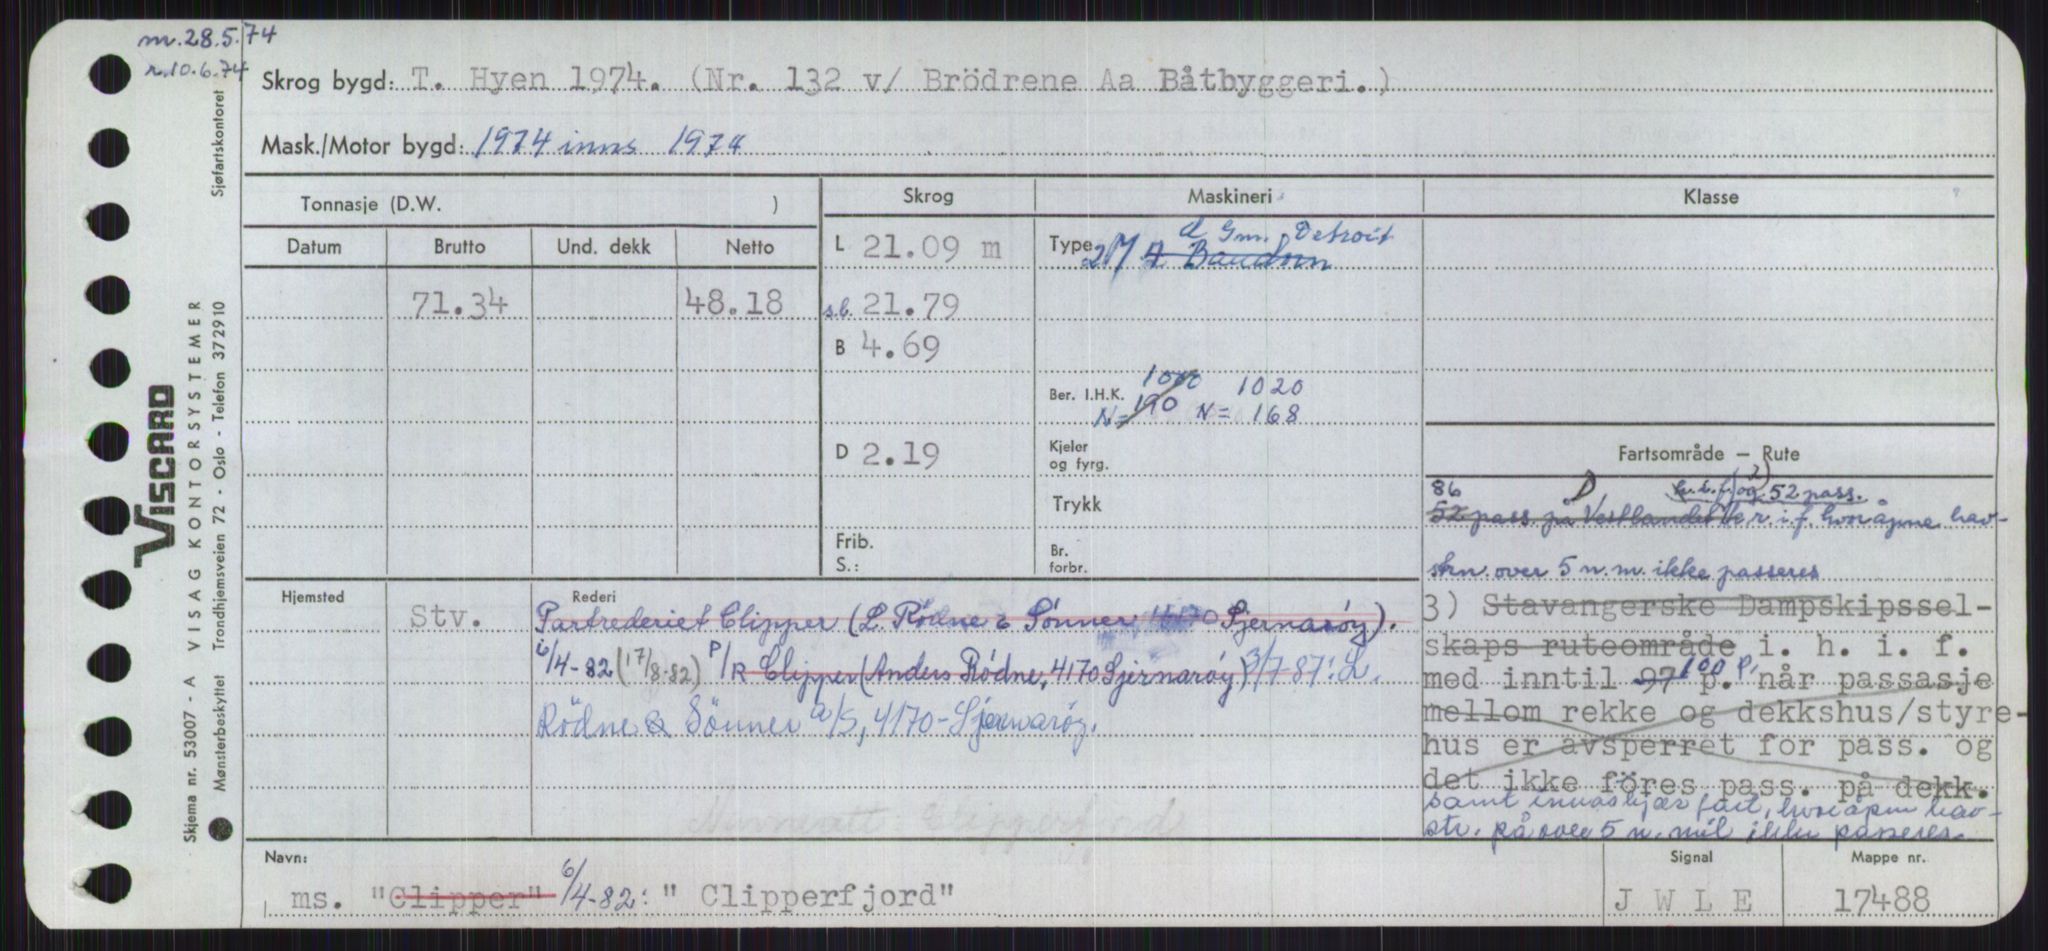 m.28.5.74
r.10.6.74
Skrog bygd: T. Hyen 1974. (Nr. 132 v/ Brödrene Aa Båtbyggeri.)
Mask./Motor bygd: 1974 inns 1974
Tonnasje (D.W. )
Skrog
Maskineri
Klasse
Datum
Brutto
Und. dekk
Netto
L 21.09 m
Type 2 d Gm. Detroit
Baudoin
71.34
48.18
s.b. 21.79
B 4.69
Ber. I.H.K. 1000 1020
N= 190 N= 168
D 2.19
Kjeler
og fyrg.
Trykk
Frib.
S.:
Br.
forbr.
Fartsområde — Rute
h.i.f. og 52 pass.
86
52 pass på Vestlandet r.i.f. hvor åpne hav-
strn. over 5 n.m. ikke passeres
3) Stavangerske Dampskipssel-
skaps ruteområde i. h. i. f.
med inntil 97 100 p. når passasje
mellom rekke og dekkshus/styre-
hus er avsperret for pass. og
det ikke föres pass. på dekk.
samt innaskjærs fart, hvor åpne hav-
str. på over 5 n. mil ikke passeres.
Hjemsted
Stv.
Rederi
Partrederiet Clipper (L. Rödne & Sönner, 4170 Sjernaröy).
6/4-82 (17/8-82) P/R Clipper (Anders Rödne, 4170 Sjernaröy) 3/7-87: L.
Rödne & Sönner a/s, 4170-Sjernaröy.
Clipperfjord
Navn:
ms. "Clipper" 6/4-82: " Clipperfjord"
Signal
J W L E
Mappe nr.
17488
VISCARD
Skjema nr. 53007 - A VISAG KONTORSYSTEMER
Mønsterbeskyttet Trondhjemsveien 72 - Oslo - Telefon 372910
Sjøfartskontoret